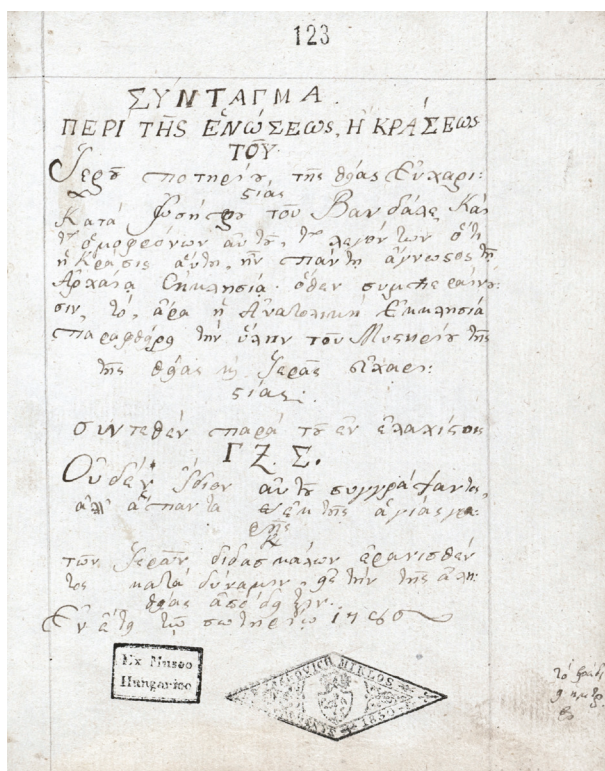 123
ΣΥΝΤΑΓΜΑ.
ΠΕΡΙ ΤΗΣ ΕΝΩΣΕΩΣ, Ἡ ΚΡΑΣΕΩΣ
ΤΟΥ
Ἱεροῦ ποτηρίου, τῆς θείας Εὐχαρι:
στίας
Κατὰ τοῦ Βανδάλε, καὶ
τῶν ὁμοφρόνων αὐτοῦ, τῶν λεγόντων ὅτι
ἡ κρᾶσις αὕτη, ἦν πάντη ἄγνωστος τῇ
Ἀρχαίᾳ Ἐκκλησίᾳ. ὅθεν συμπεραίνου:
σιν, τὸ, ἄρα ἡ Ἀνατολικὴ Ἐκκλησία
παραφθείρει τὴν ὕλην τοῦ Μυστηρίου τῆς
τῆς θείας καὶ Ἱερᾶς εὐχαρι:
στίας:
συντεθὲν παρὰ τοῦ ἐν ἐλαχίστοις
Γ Ζ. Σ.
Οὐδὲν ἴδιον αὐτοῦ συγγράψαντος,
ἀλλ' ἅπαντα ἐκ τῆς ἁγίας γρα:
φῆς
τῶν Ἱερῶν διδασκάλων ἐρανισθέν
τος κατὰ δύναμιν, τὴν τῆς ἀλη:
θείας
Ἐν ἔτει τῷ σωτηρίῳ
Ex Museo
Hungarico
JANKOVICH MIKLOS
1830